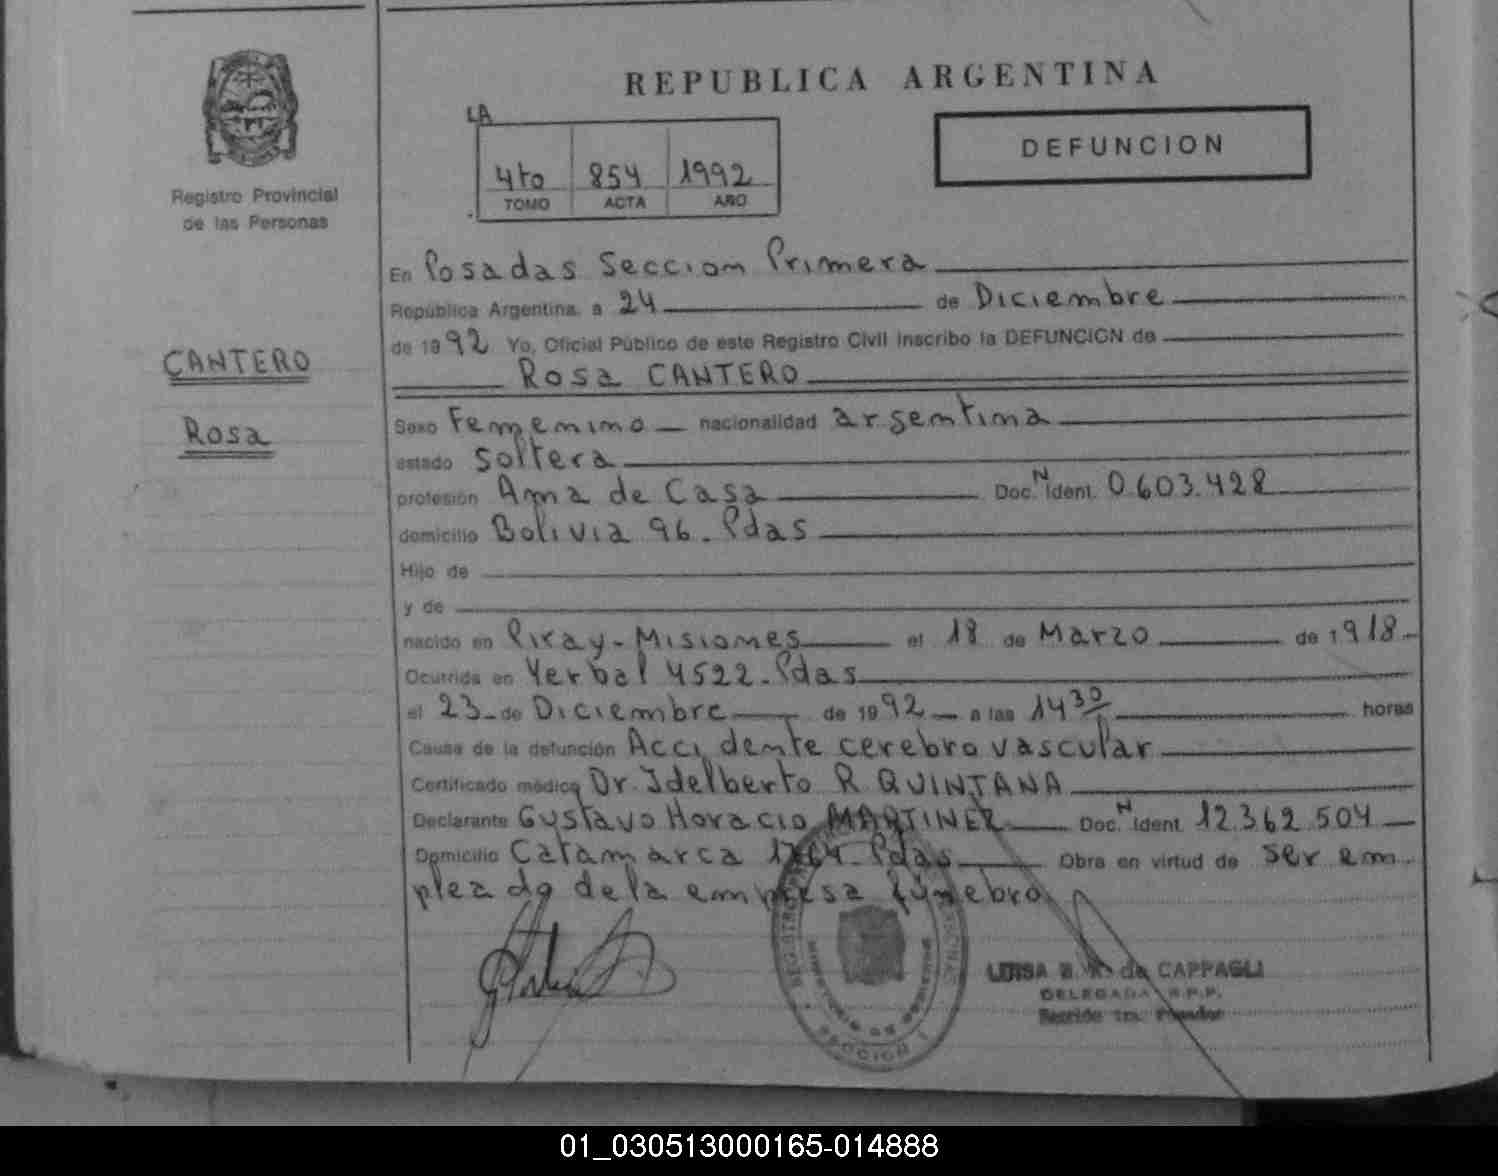 REPUBLICA ARGENTINA
LA
4to 854 1992
TOMO ACTA AÑO
DEFUNCION
Registro Provincial
de las Personas
CANTERO
Rosa
En Posadas Seccion Primera
República Argentina, a 24 de Diciembre
de 1992 Yo, Oficial Público de este Registro Civil inscribo la DEFUNCION de
Rosa CANTERO
Sexo Femenino nacionalidad argentina
estado soltera
profesión Ama de Casa Doc. N Ident. 0.603.428
domicilio Bolivia 96. Pdas
Hijo de
y de
nacido en Piray-Misiones el 18 de Marzo de 1918
Ocurrida en Yerbal 4522. Pdas
el 23 de Diciembre de 1992 a las 14 30 horas
Causa de la defunción Accidente cerebro vascular
Certificado médico Dr. Idelberto R QUINTANA
Declarante Gustavo Horacio Doc. N Ident. 12.362.504
Domicilio Catamarca Pdas Obra en virtud de ser em
pleado de la empresa fúnebre
LUISA B. de CAPPAGLI
DELEGADA R.P.P.
SECCION 1
01_030513000165-014888